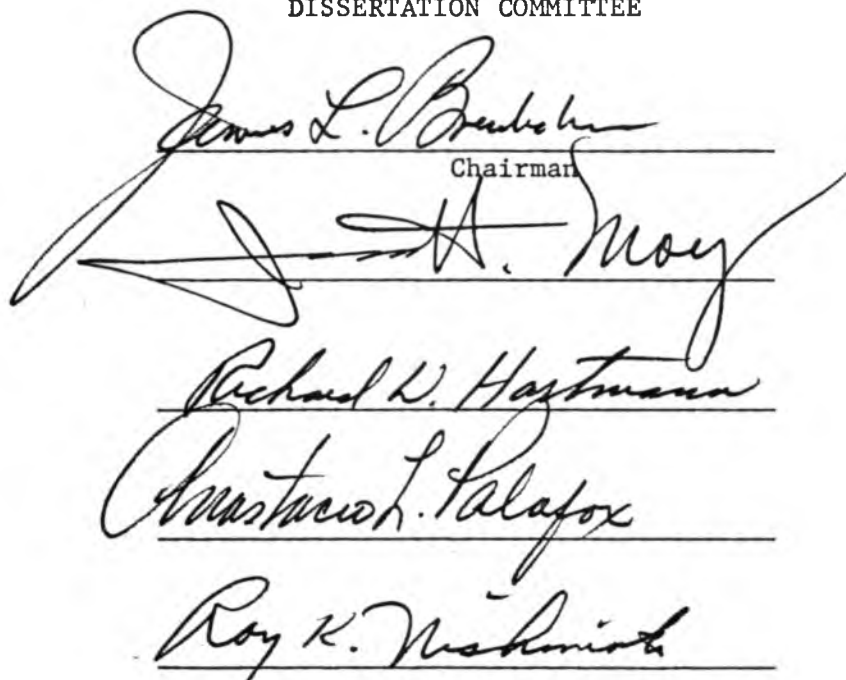 DISSERTATION COMMITTEE
James L. Brewbaker
Chairman
H. Moy
Richard W. Hartmann
Anastacio L. Palafox
Roy K. Nishimoto